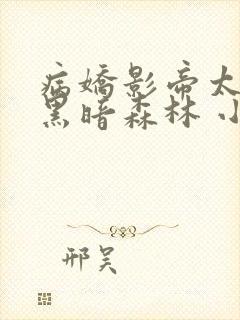 病嬌影帝太
黑暗森林 小
邢昊